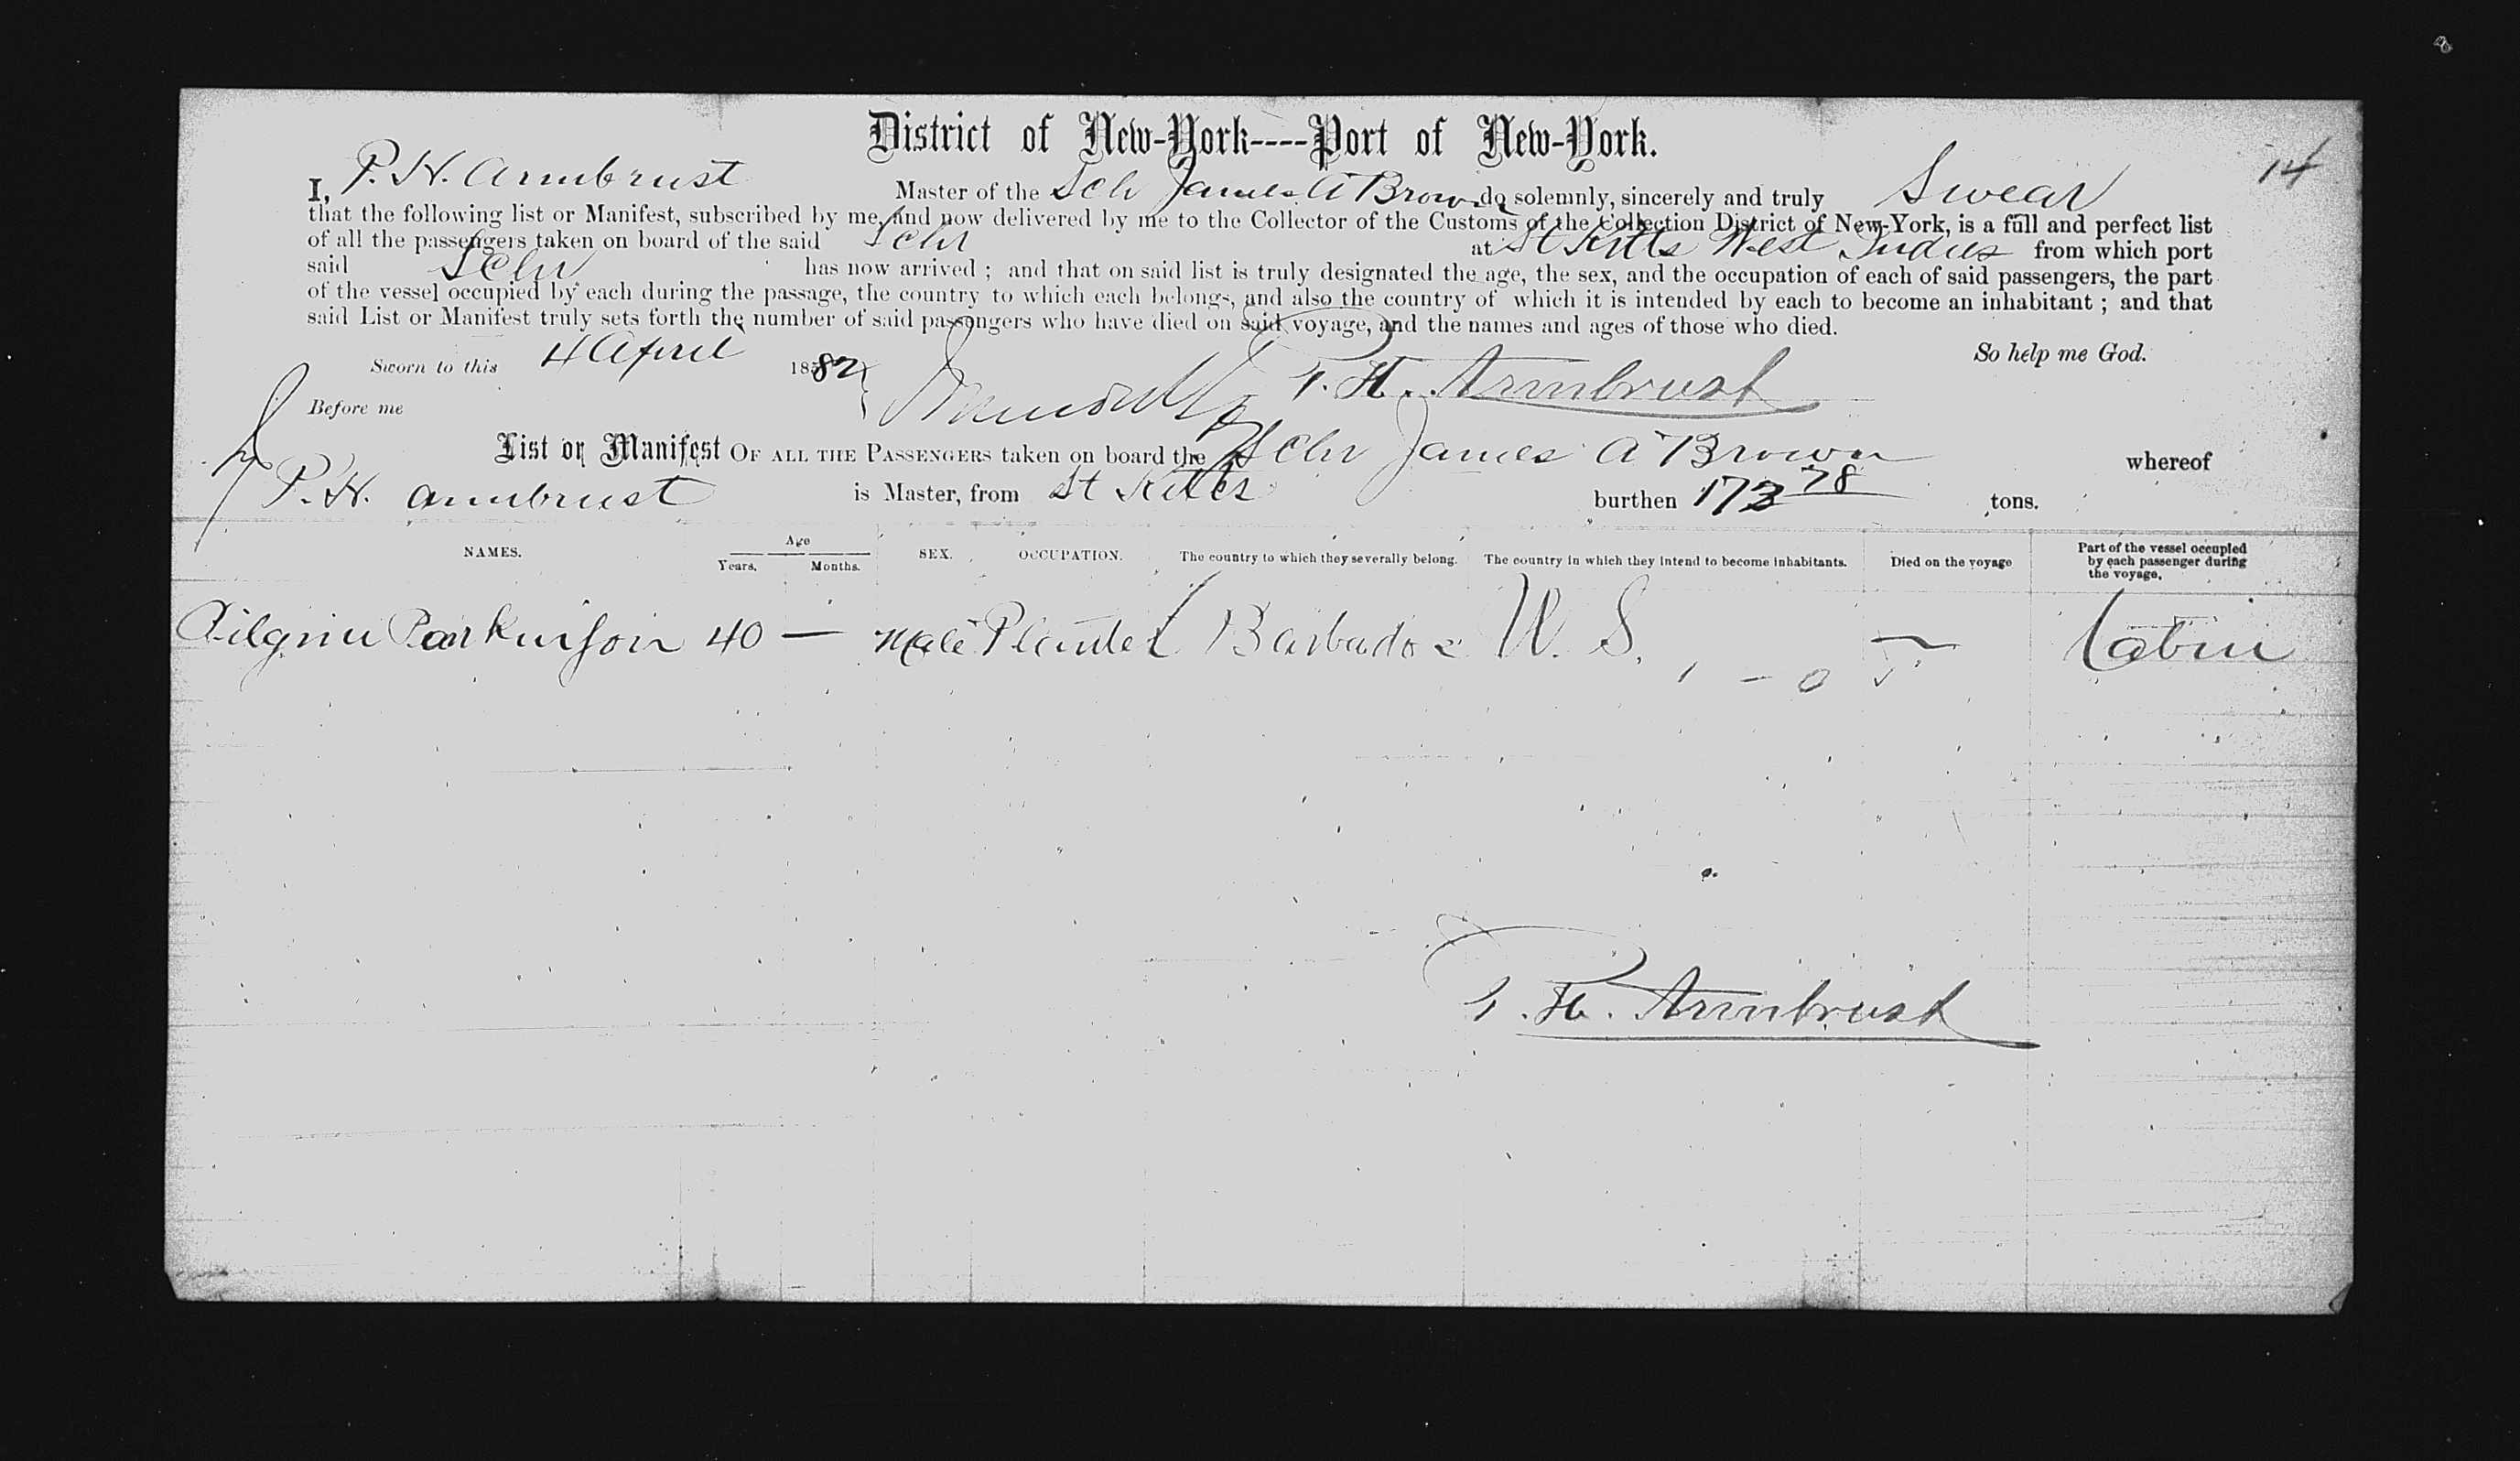 District of New-York----Port of New-York.
14
I, P. H. Armbrust Master of the Sch James A Brown do solemnly, sincerely and truly Swear
that the following list or Manifest, subscribed by me, and now delivered by me to the Collector of the Customs of the Collection District of New-York, is a full and perfect list
of all the passengers taken on board of the said Schr at St Kitts West Indies from which port
said Schr has now arrived ; and that on said list is truly designated the age, the sex, and the occupation of each of said passengers, the part
of the vessel occupied by each during the passage, the country to which each belongs, and also the country of which it is intended by each to become an inhabitant ; and that
said List or Manifest truly sets forth the number of said passengers who have died on said voyage, and the names and ages of those who died.
So help me God.
Sworn to this 4 April 1882
P. H. Armbrust
Before me
List or Manifest OF ALL THE PASSENGERS taken on board the Schr James A Brown whereof
P. H. Armbrust is Master, from St Kitts burthen 173 78 tons.
NAMES. Age Years. Months. SEX. OCCUPATION. The country to which they severally belong. The country in which they intend to become inhabitants. Died on the voyage Part of the vessel occupied by each passenger during the voyage.
Pilgrim Parkinson 40 — Male Planter Barbados U. S. — Cabin
P. H. Armbrust